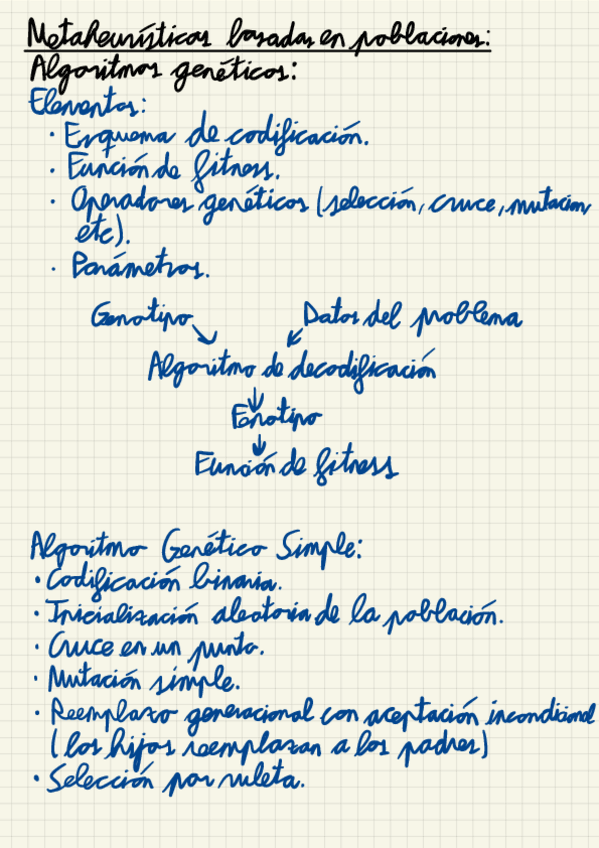 Metaheurísticas basadas en poblaciones:
Algoritmos genéticos:
Elementos:
· Esquema de codificación.
· Función de fitness.
· Operadores genéticos (selección, cruce, mutacion,
etc).
· Parámetros.
Genotipo Datos del problema
Algoritmo de decodificación
Fenotipo
Función de fitness
Algoritmo Genético Simple:
· Codificación binaria.
· Inicialización aleatoria de la población.
· Cruce en un punto.
· Mutación simple.
· Reemplazo generacional con aceptación incondicional
(los hijos reemplazan a los padres)
· Selección por ruleta.